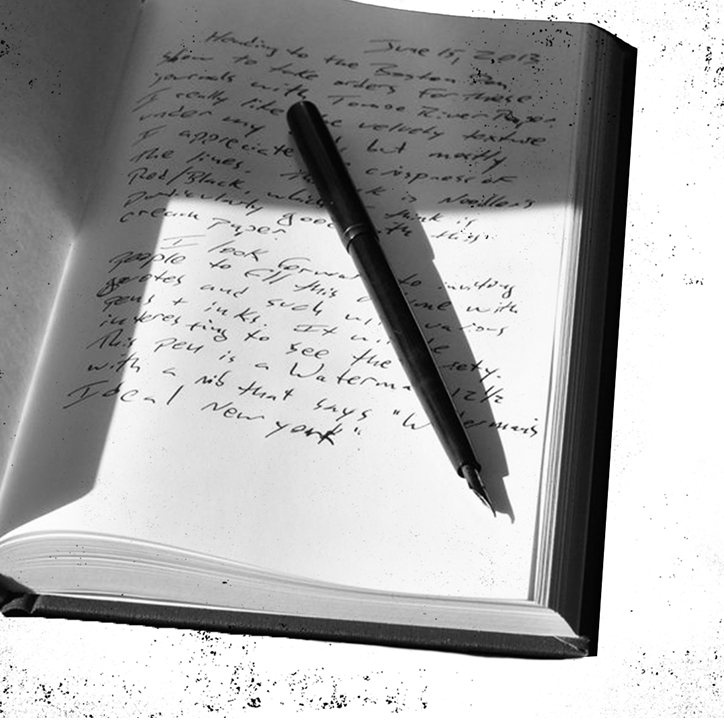 June 15, 2013
Heading to the Boston Pen
show to take orders for these
journals with Tomoe River Paper.
I really like the velvety texture
under my but mostly
I appreciate crispness of
the lines. The ink is Noodler's
Red/Black, which I think is
particularly good with this
cream paper.
I look forward to inviting
people to fill this journal with
quotes and such with various
pens + inks. It will be
interesting to see the variety.
This pen is a Waterman 12½
with a nib that says "Waterman's
Ideal New York".